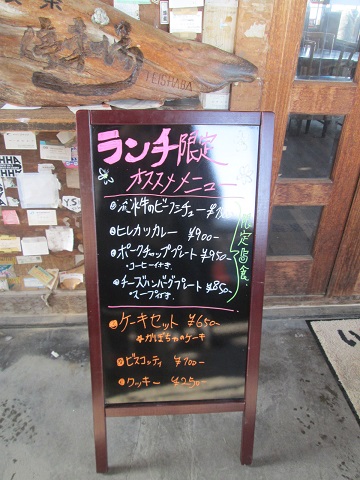 TEISHABA
ランチ限定
オススメメニュー
牛のビーフシチュー
ヒレカツカレー ¥900-
ポークチャッププレート ¥950-
コーヒー付き.
チーズハンバーグプレート ¥850-
スープ付き
限定 食
ケーキセット ¥650-
かぼちゃのケーキ
ビスコッティ
クッキー ¥250-